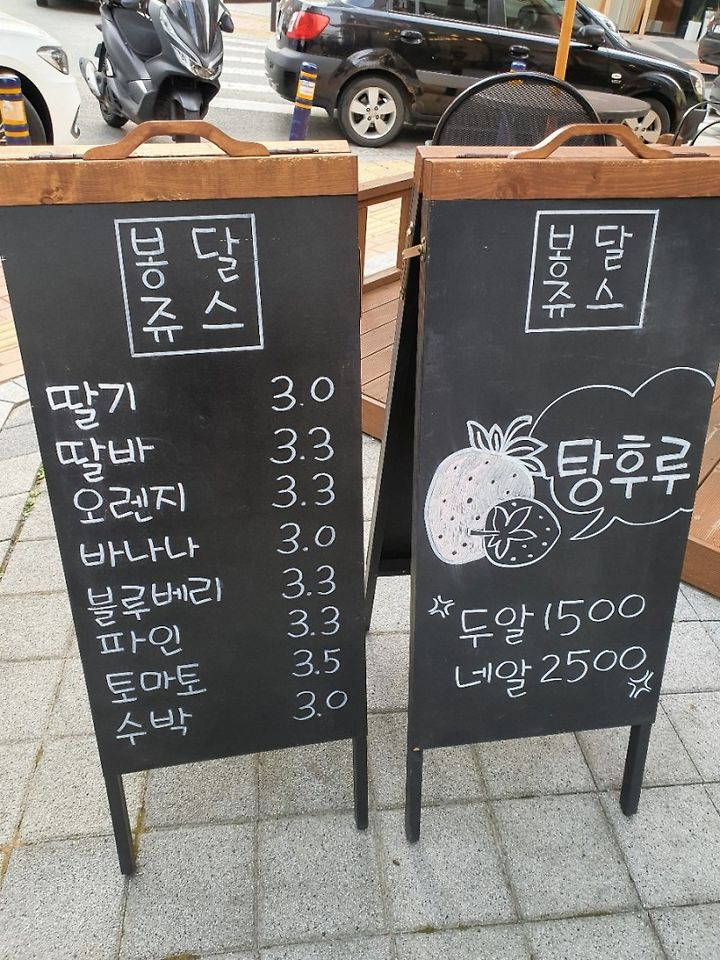 봉달
쥬스
딸기 3.0
딸바 3.3
오렌지 3.3
바나나 3.0
블루베리 3.3
파인 3.3
토마토 3.5
수박 3.0
봉달
쥬스
탕후루
두알 1500
네알 2500